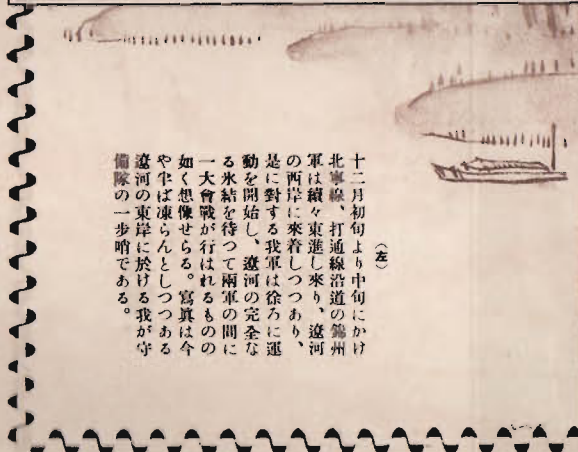 （左）
十二月初旬より中旬にかけ
北寧線、打通線沿道の錦州
軍は續々東進し來り、遼河
の西岸に來着しつつあり、
是に對する我軍は徐ろに運
動を開始し、遼河の完全な
る氷結を待つて兩軍の間に
一大會戰が行はれるものの
如く想像せらる。寫眞は今
や半ば凍らんとしつつある
遼河の東岸に於ける我が守
備隊の一步哨である。